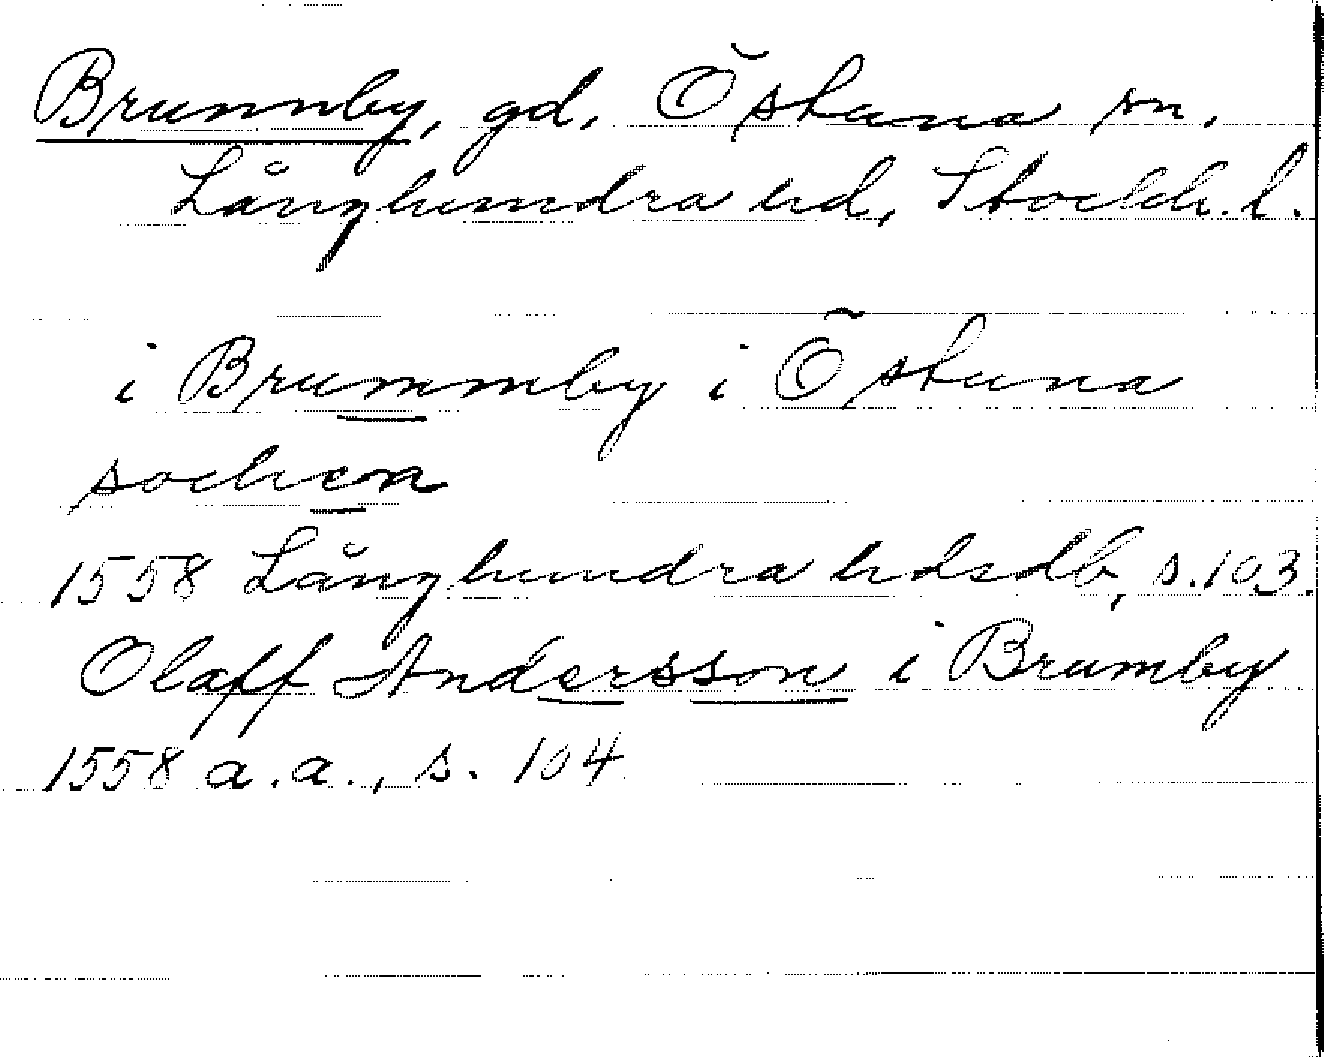 Brunnby, gd, Östuna sn,
Långhundra hd, Stockh. l.
i Brummby i Östuna
sochen
1558 Långhundra hdsdb, s. 103.
Olaff Andersson i Brumby
1558 a.a., s. 104